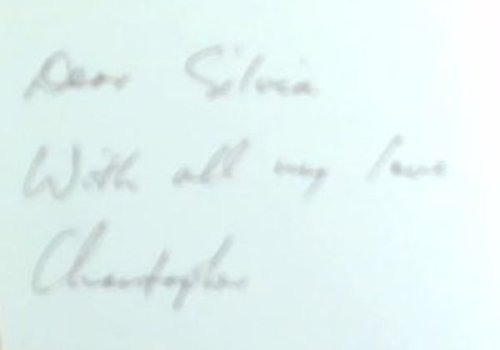 Dear Silvia
With all my love
Christopher